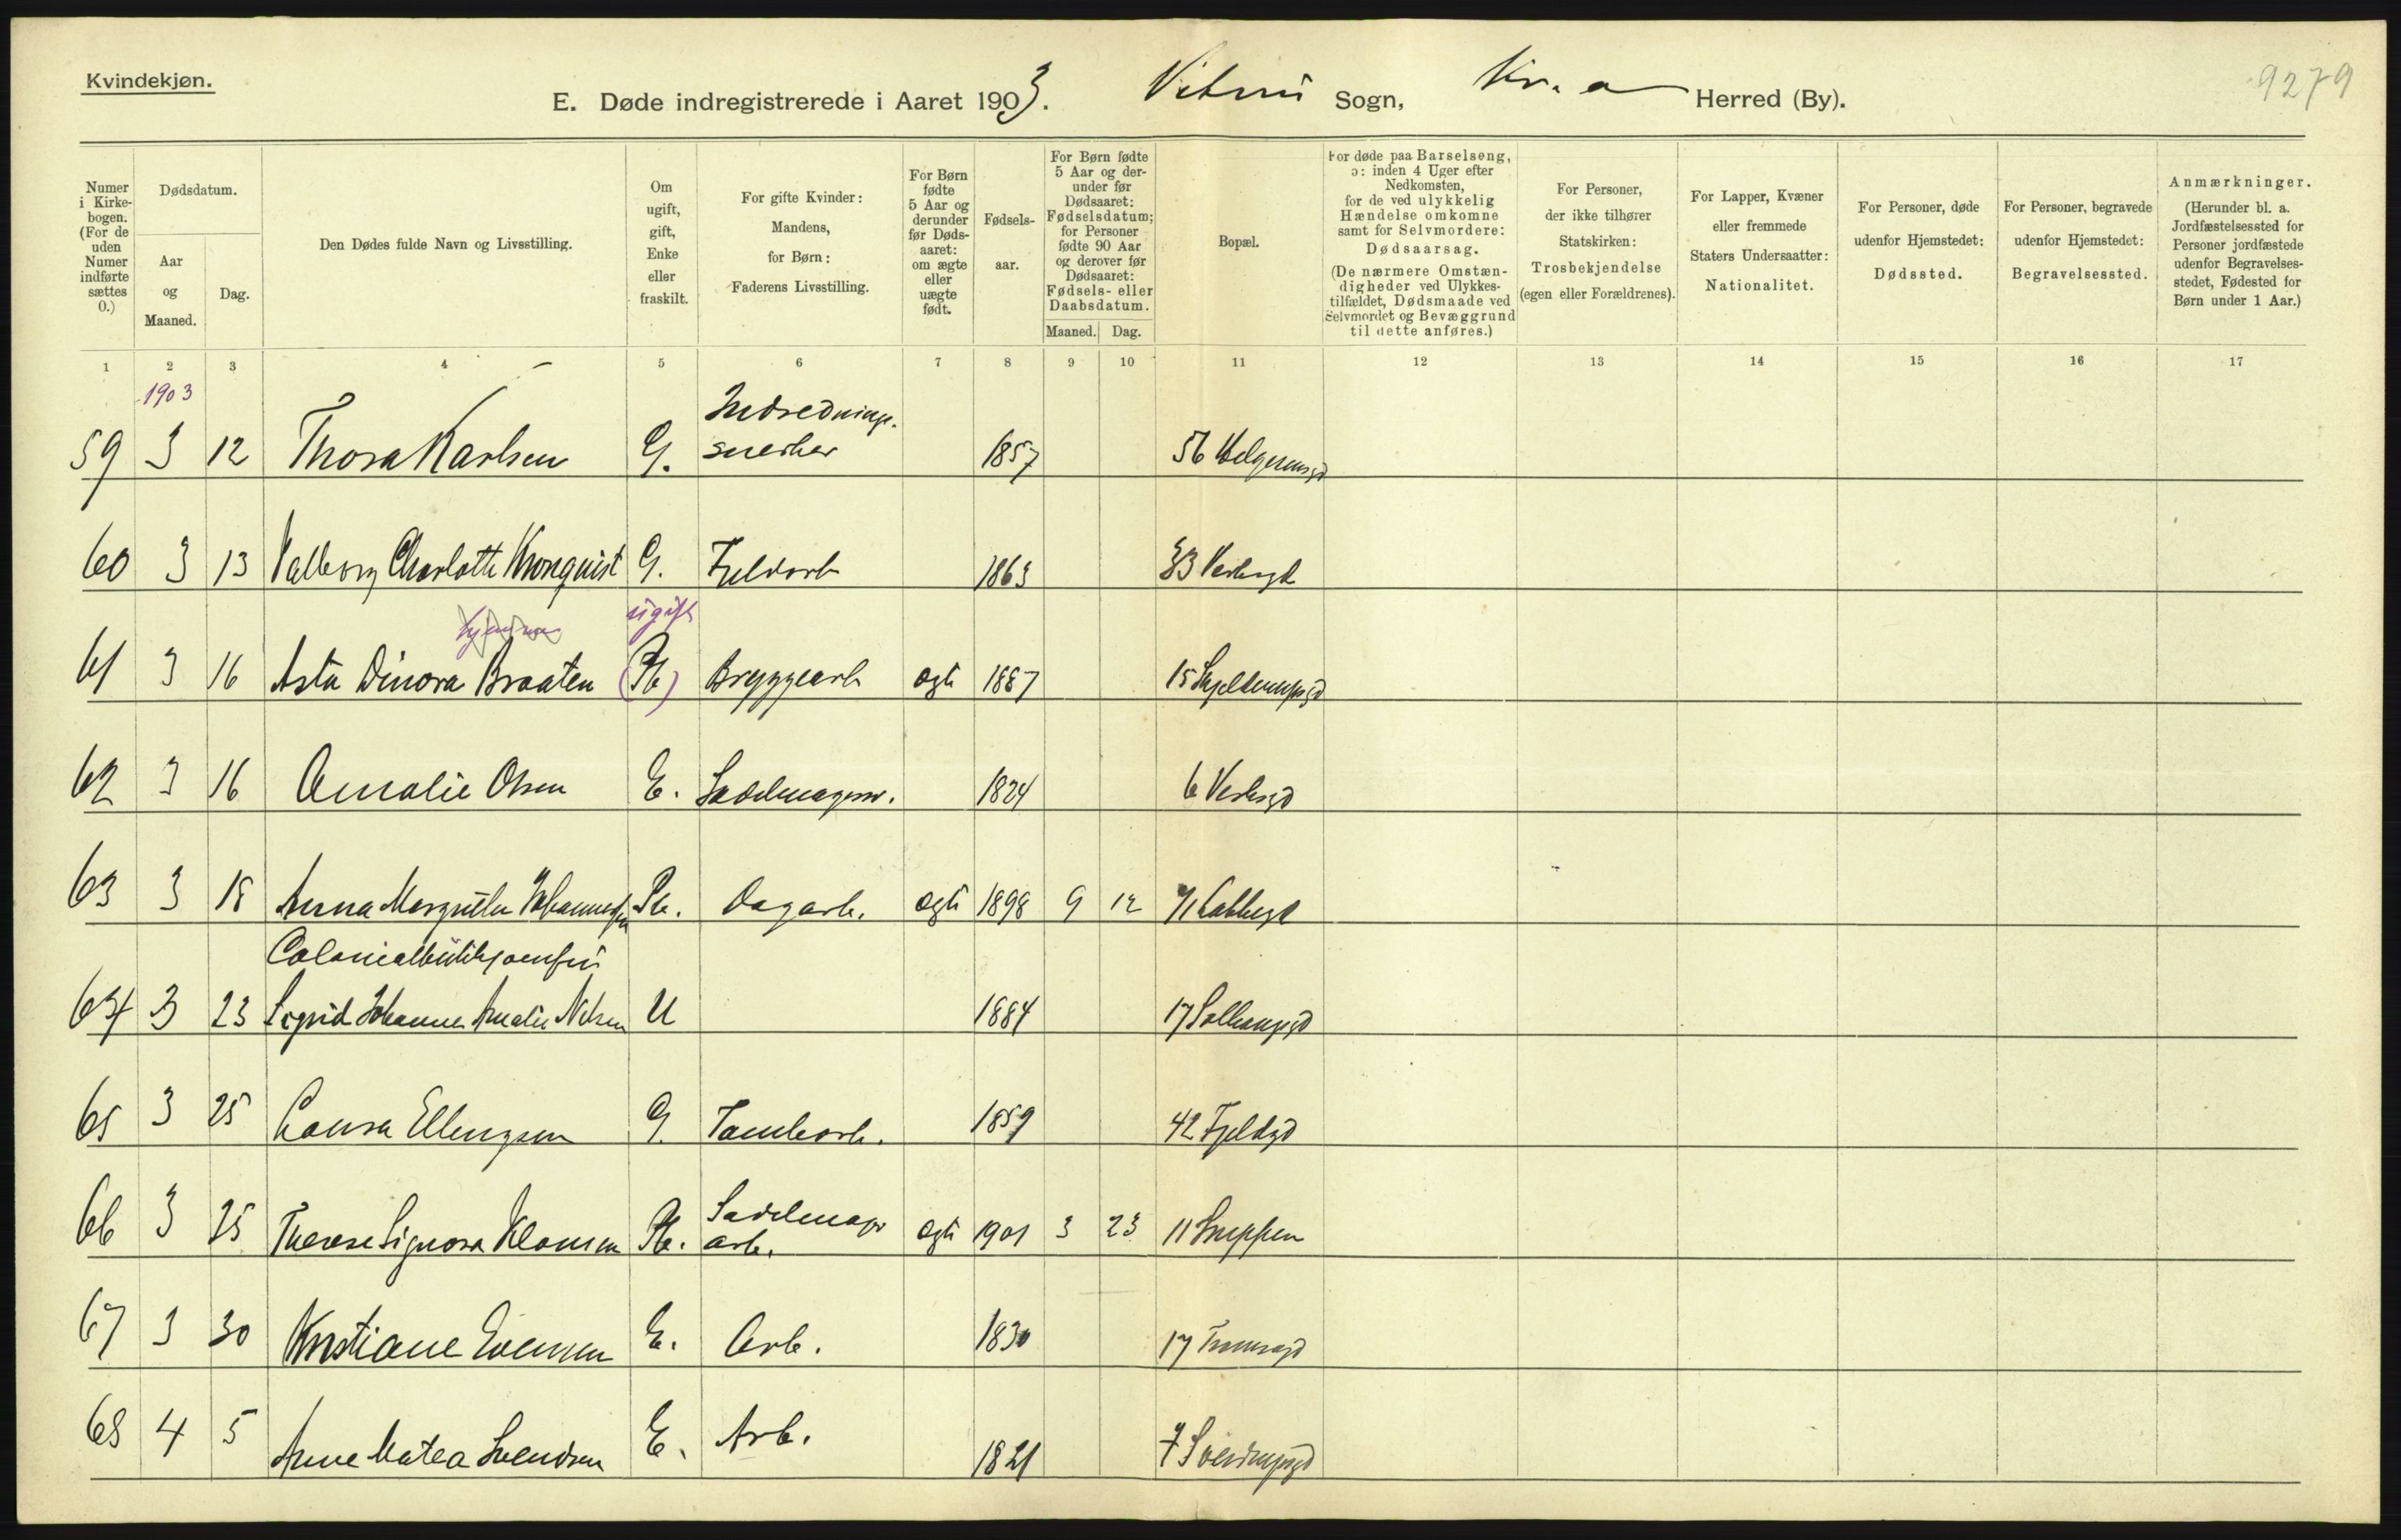 Kvindekjøn.
E. Døde indregistrerede i Aaret 1903. Sogn, Kr.a Herred (By).
9279
Numer i Kirkebogen. (For de uden Numer indførte sættes 0.)
Dødsdatum.
Aar og Maaned.
Dag.
Den Dødes fulde Navn og Livsstilling.
Om ugift, gift, Enke eller fraskilt.
For gifte Kvinder: Mandens, for Børn: Faderens Livsstilling.
For Børn fødte 5 Aar og derunder før Dødsaaret: om ægte eller uægte født.
Fødselsaar.
For Børn fødte 5 Aar og derunder før Dødsaaret: Fødselsdatum; for Personer fødte 90 Aar og derover før Dødsaaret: Fødsels- eller Daabsdatum.
Maaned. Dag.
Bopæl.
For døde paa Barselseng, ɔ: inden 4 Uger efter Nedkomsten, for de ved ulykkelig Hændelse omkomne samt for Selvmordere: Dødsaarsag. (De nærmere Omstændigheder ved Ulykkestilfældet, Dødsmaade ved Selvmordet og Bevæggrund til dette anføres.)
For Personer, der ikke tilhører Statskirken: Trosbekjendelse (egen eller Forældrenes).
For Lapper, Kvæner eller fremmede Staters Undersaatter: Nationalitet.
For Personer, døde udenfor Hjemstedet: Dødssted.
For Personer, begravede udenfor Hjemstedet: Begravelsessted.
Anmærkninger. (Herunder bl. a. Jordfæstelsessted for Personer jordfæstede udenfor Begravelsesstedet, Fødested for Børn under 1 Aar.)
1 2 3 4 5 6 7 8 9 10 11 12 13 14 15 16 17
1903
Indrednings.
59 3 12 Thora Karlsen G. snedker 1857 56 Helgesensgd
60 3 13 Valborg Charlotte Kronquist G. Fjeldarb 1863 83 Verksgd
ugift
61 3 16 Asta Dinora Braaten (Pb) Bryggearb ægte 1887 15
62 3 16 Amalie Olsen E. Sadelmagersv. 1824 6 Verksgd
63 3 18 Anna Margrethe Johannesen Pb. Dagarb. ægte 1898 9 12
Colonialbutikjomfru
64 3 23 Sigrid Johanne Amalie Nilsen U 1884 17 Solhaugsgd
65 3 25 Laura Ellingsen G. Tomtearb. 1859 42 Fjeldgd
Sadelmager
66 3 25 Therese Signora Klausen Pb. arb. ægte 1901 3 23 11 Snippen
67 3 30 Kristiane Evensen E. Arb. 1830 17
68 4 5 Anne Matea Svendsen E. Arb. 1821 7 Sverdrupsgd